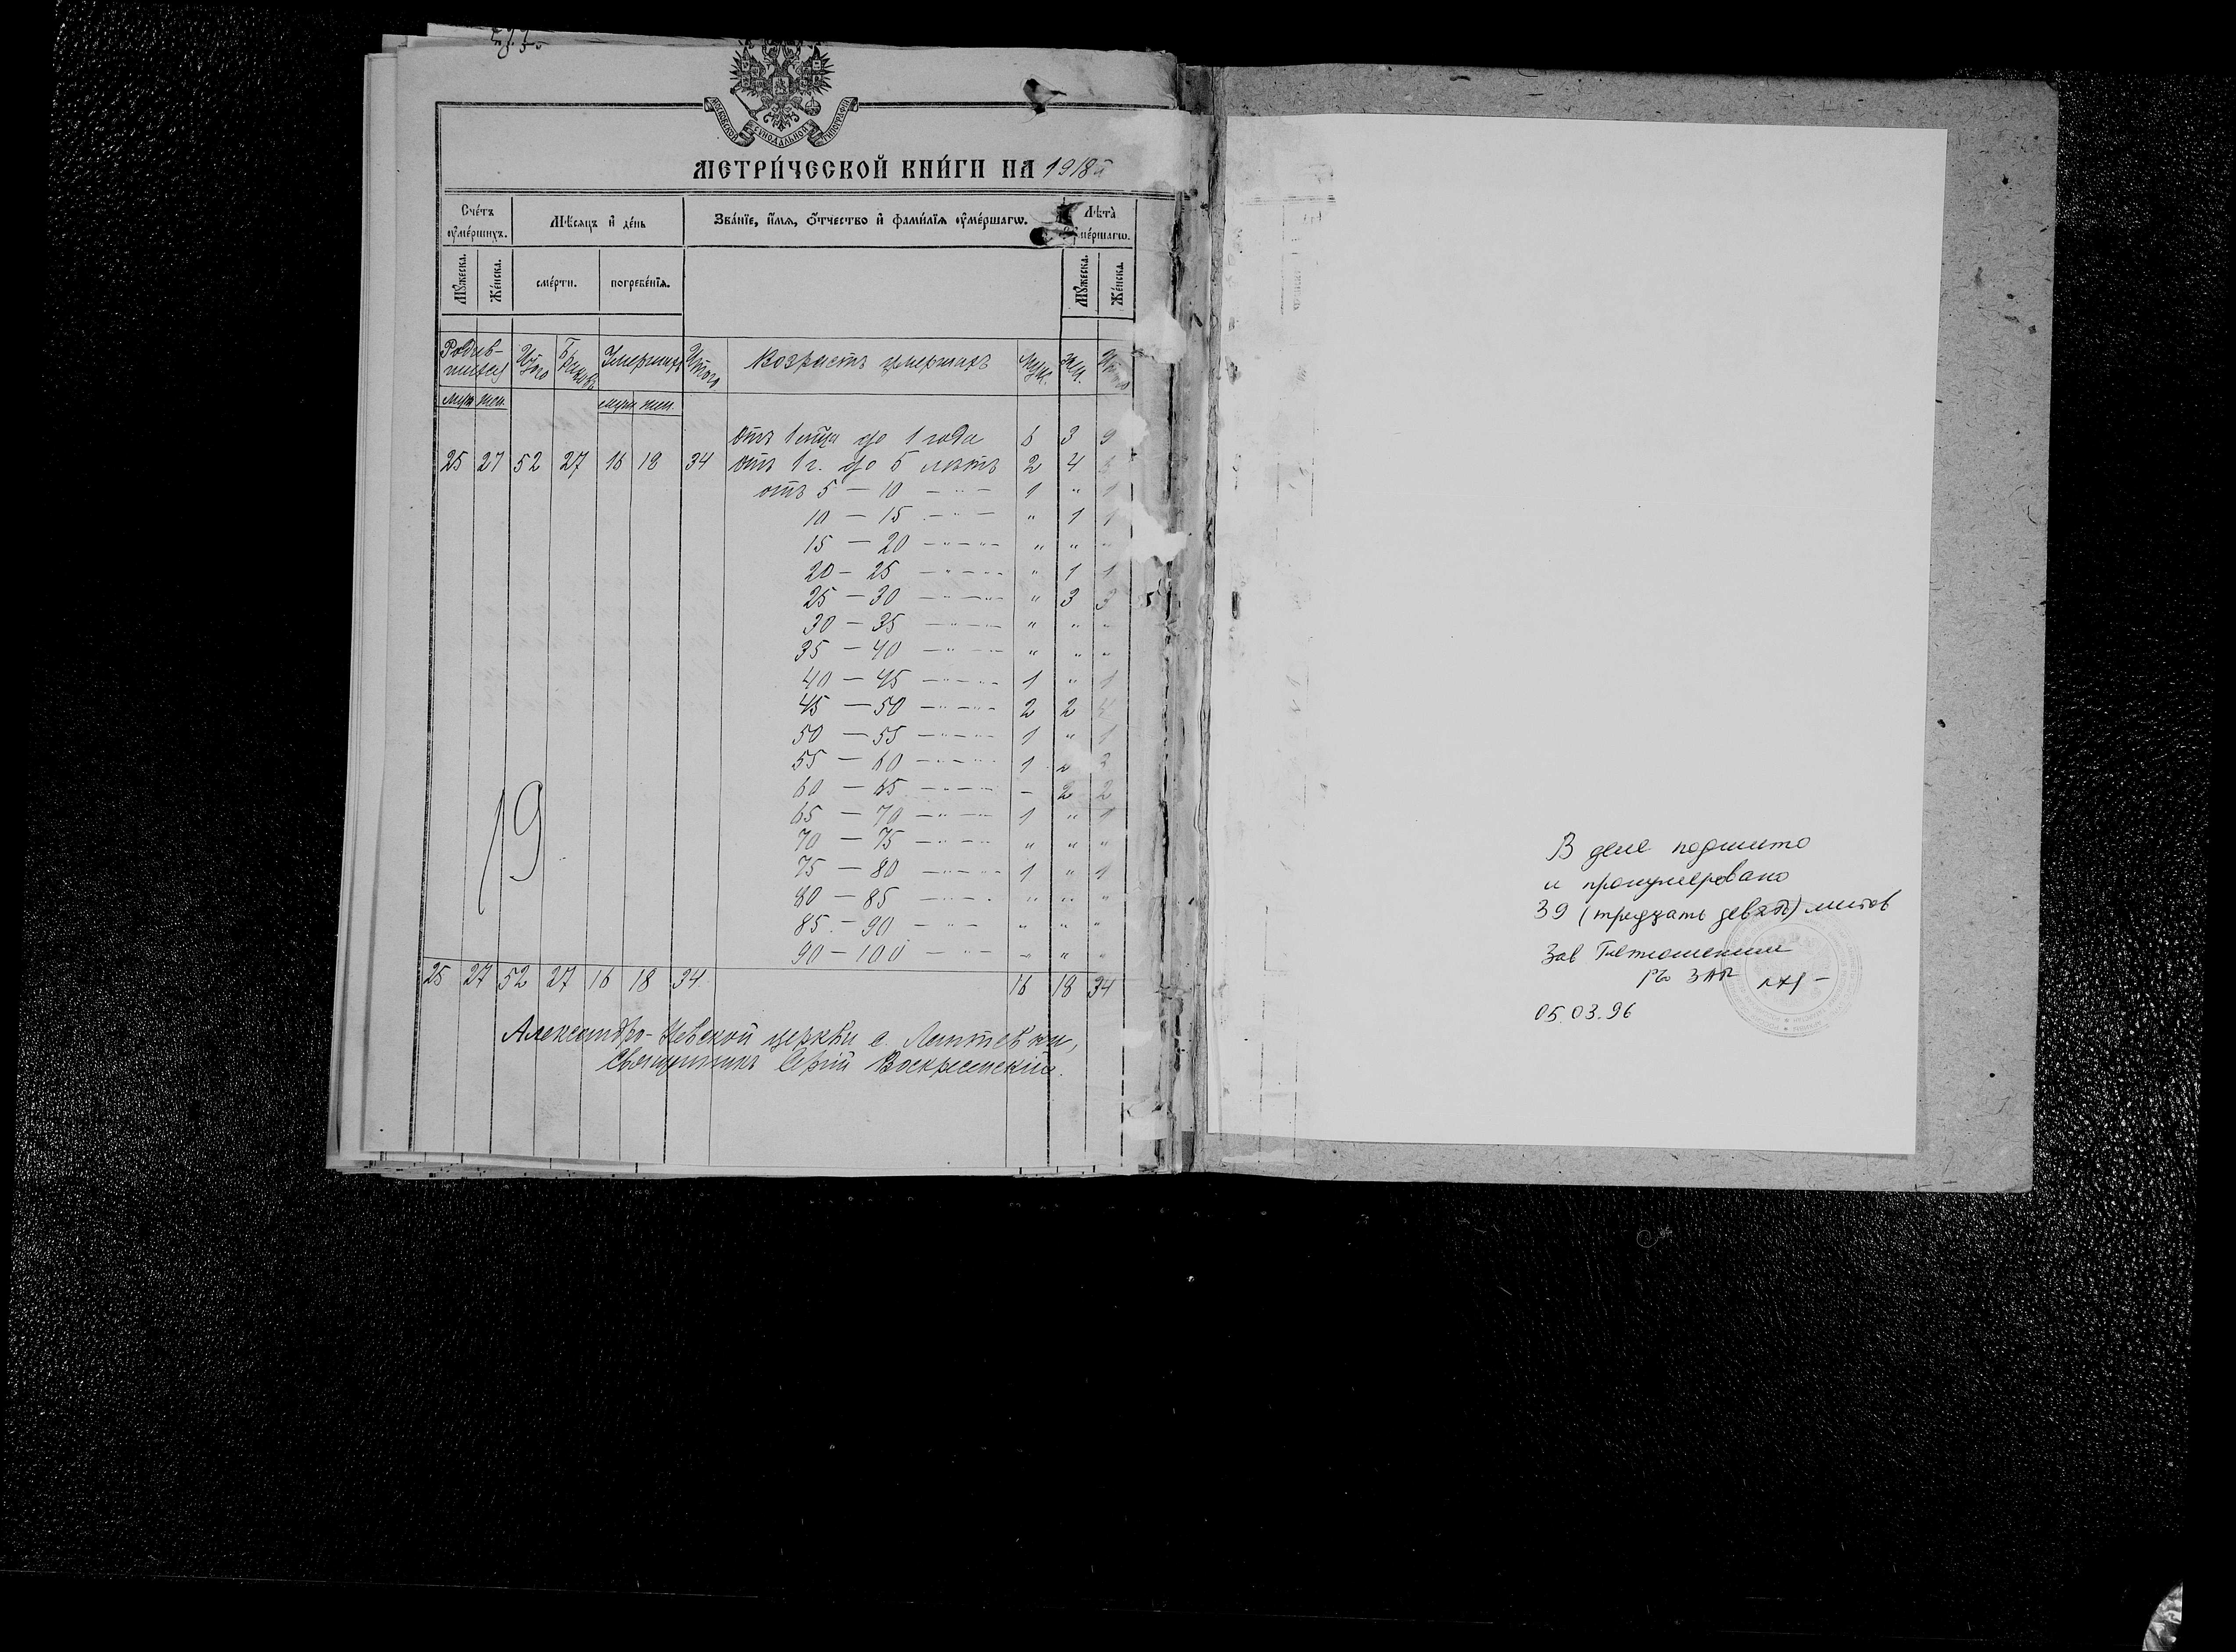 МОСКОВСКОЙ СѴНОДАЛЬНОЙ ТИПОГРАФІИ
МЕТРИ́ЧЕСКОЙ КНИ́ГИ НА 1918й
Сче́тъ ᲂу҆ме́ршихъ.
Мѣ́сяцъ и҆ де́нь
Зва́нїе, и҆́мѧ, ѻ҆́тчество и҆ фами́лїѧ ᲂу҆ме́ршагѡ.
Лѣ́та̀ ᲂу҆ме́ршагѡ.
Мꙋ́жеска. Же́нска. сме́рти. погребе́нїѧ. Мꙋ́жеска. Же́нска.
Родив- шихся Итого Браковъ Умершихъ Итого Возрастъ умершихъ муж. жен. Итого
муж жен муж жен.
отъ 1 мѣца до 1 года 6 3 9
25 27 52 27 16 18 34 отъ 1 г. до 5 лѣтъ 2 4
отъ 5 — 10 — " — 1 " 1
10 — 15 — " — " 1 1
15 — 20 — " — " — " " "
20 — 25 — " — " — " 1 1
25 — 30 — " — " — " 3 3
30 — 35 — " — " — " " "
35 — 40 — " — " — " " "
40 — 45 — " — " — 1 " 1
45 — 50 — " — " — 2 2 4
50 — 55 — " — " — 1 " 1
55 — 60 — " — " — 1 2 3
60 — 65 — " — " — - 2 2
65 — 70 — " — " — 1 " 1
70 — 75 — " — " — " " "
75 — 80 — " — " — 1 " 1
80 — 85 — " — " — " " "
85 — 90 — " — " " "
90 — 100 — " — " " "
19
25 27 52 27 16 18 34. 16 18 34
Александро-Невской церкви с. Лаптевки,
Священникъ Сергій Воскресенскій.
В деле подшито
и пронумеровано
39 (тридцать девять) листов
Зав Тетюшским
05.03.96